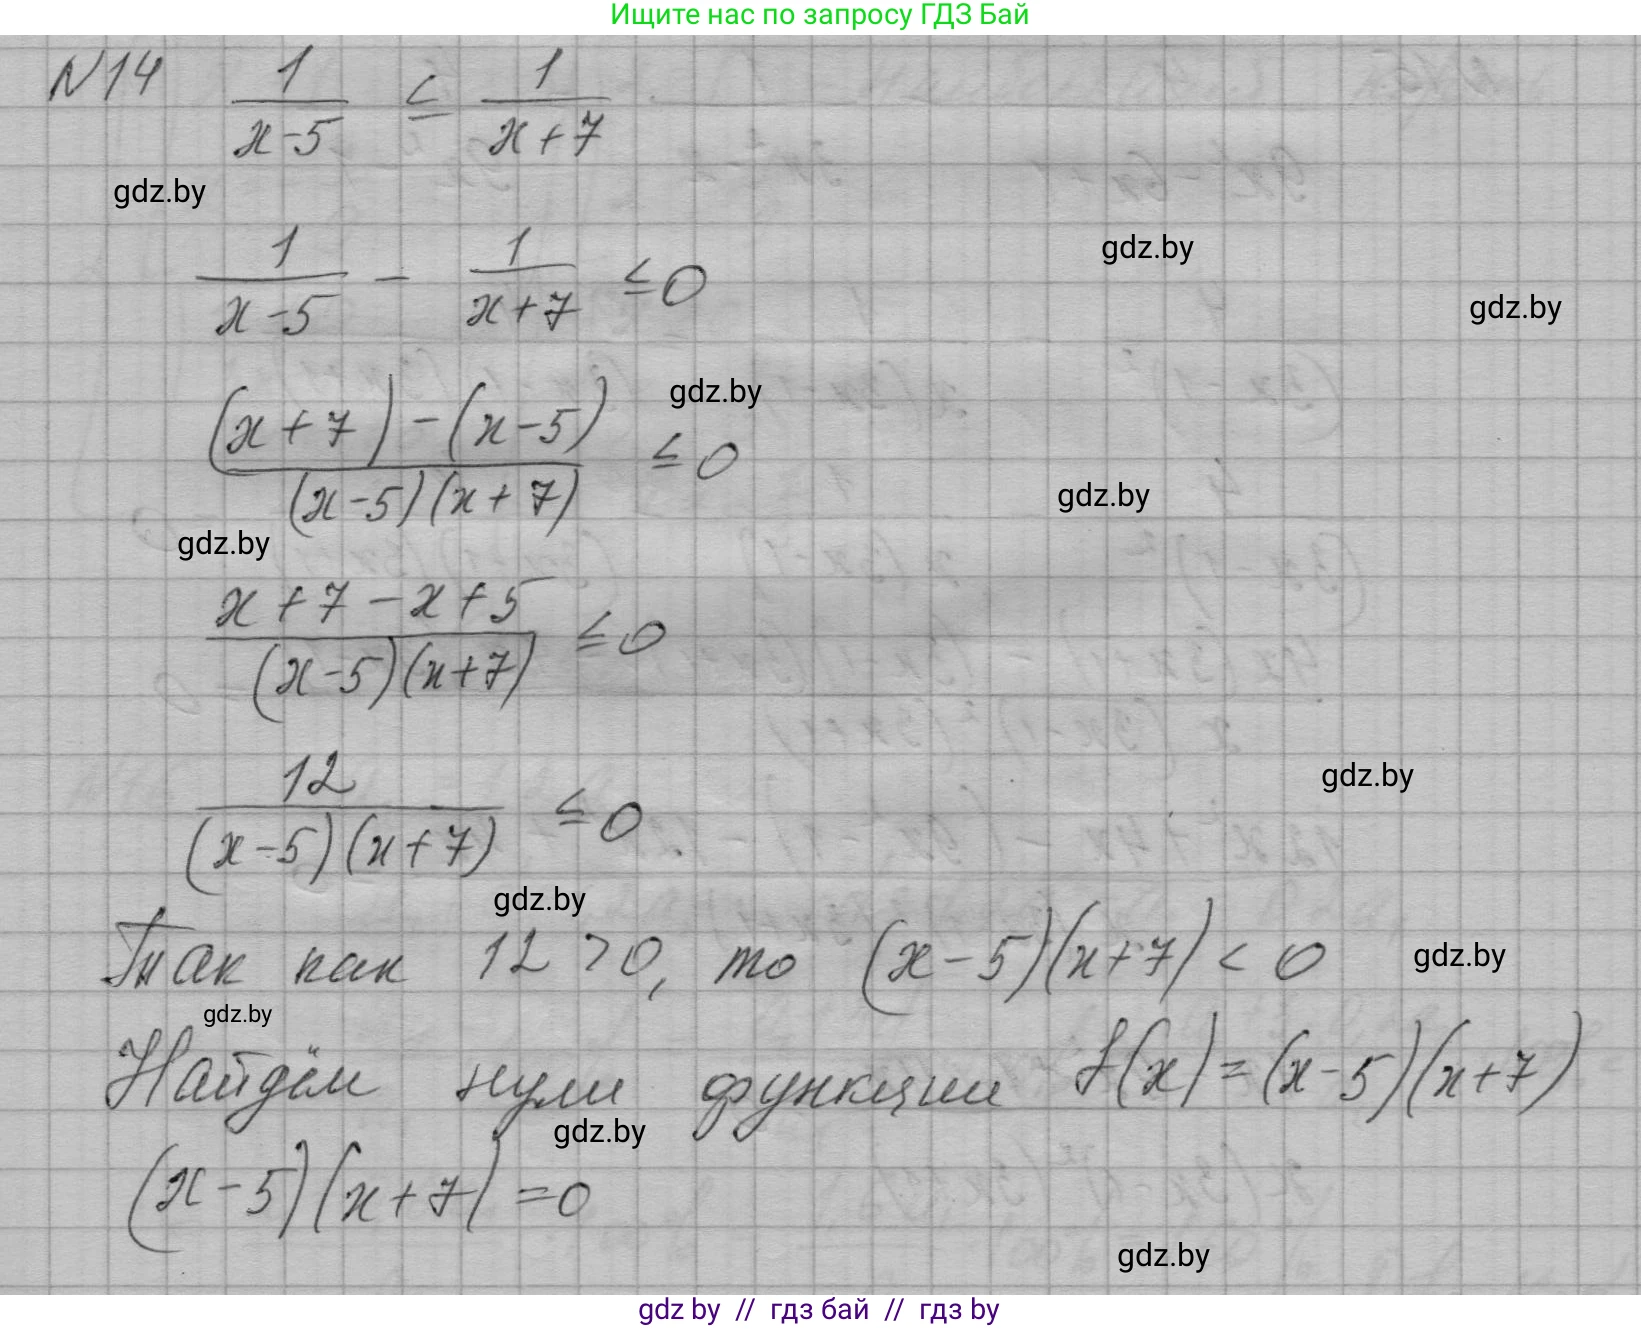 Ищите нас по запросу ГДЗ Бай
N14 1/(x-5) ≤ 1/(x+7)
gdz.by
1/(x-5) - 1/(x+7) ≤ 0
gdz.by
gdz.by
((x+7)-(x-5))/((x-5)(x+7)) ≤ 0
gdz.by
gdz.by
gdz.by
(x+7-x+5)/((x-5)(x+7)) ≤ 0
12/((x-5)(x+7)) ≤ 0.
gdz.by
gdz.by
Так как 12 > 0, то (x-5)(x+7) < 0
gdz.by
gdz.by
Найдём нули функции f(x)=(x-5)(x+7)
gdz.by
(x-5)(x+7)=0
gdz.by
gdz by // гдз бай // гдз by